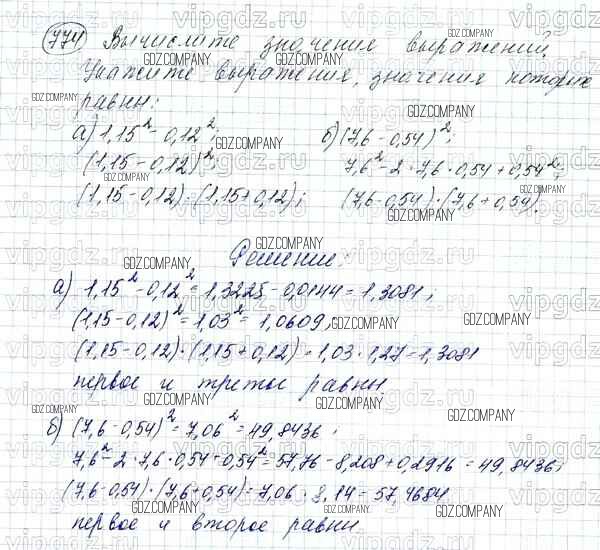 774 Вычислите значения выражений.
Укажите выражения, значения которых
равны:
а) 1,15² - 0,12²; б) (7,6 - 0,54)²;
(1,15 - 0,12)²; 7,6² - 2 · 7,6 · 0,54 + 0,54²;
(1,15 - 0,12) · (1,15 + 0,12); (7,6 - 0,54) · (7,6 + 0,54).
Решение:
а) 1,15² - 0,12² = 1,3225 - 0,0144 = 1,3081;
(1,15 - 0,12)² = 1,03² = 1,0609;
(1,15 - 0,12) · (1,15 + 0,12) = 1,03 · 1,27 = 1,3081
первое и третье равны
б) (7,6 - 0,54)² = 7,06² = 49,8436;
7,6² - 2 · 7,6 · 0,54 + 0,54² = 57,76 - 8,208 + 0,2916 = 49,8436;
(7,6 - 0,54) · (7,6 + 0,54) = 7,06 · 8,14 = 57,4684
первое и второе равны
GDZ.COMPANY
vipgdz.ru